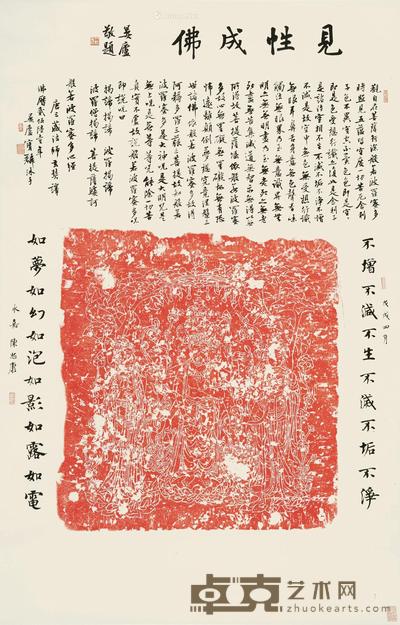 見性成佛
敬題
觀自在菩薩行深般若波羅蜜多
時照見五蘊皆空度一切苦厄舍利
子色不異空空不異色色即是空空
即是色受想行識亦復如是舍利子
是諸法空相不生不滅不垢不淨不增
不減是故空中無色無受想行識
無眼耳鼻舌身意無色聲香味
觸法無眼界乃至無意識界無無
明亦無無明盡乃至無老死亦無老
死盡無苦集滅道無智亦無得以無
所得故菩提薩埵依般若波羅蜜
多故心無罣礙無罣礙故無有恐
怖遠離顛倒夢想究竟涅槃三
世諸佛依般若波羅蜜多故得
阿耨多羅三藐三菩提故知般若
波羅蜜多是大神咒是大明咒是
無上咒是無等等咒能除一切苦
真實不虛故說般若波羅蜜多咒
即說咒曰
揭諦揭諦 波羅揭諦
波羅僧揭諦 菩提薩婆訶
般若波羅蜜多心經
唐三藏法師玄奘譯
戊戌四月
不增不減不生不滅不垢不淨
如夢如幻如泡如影如露如電
永嘉陳忠康
卓克艺术网
zhuokearts.com